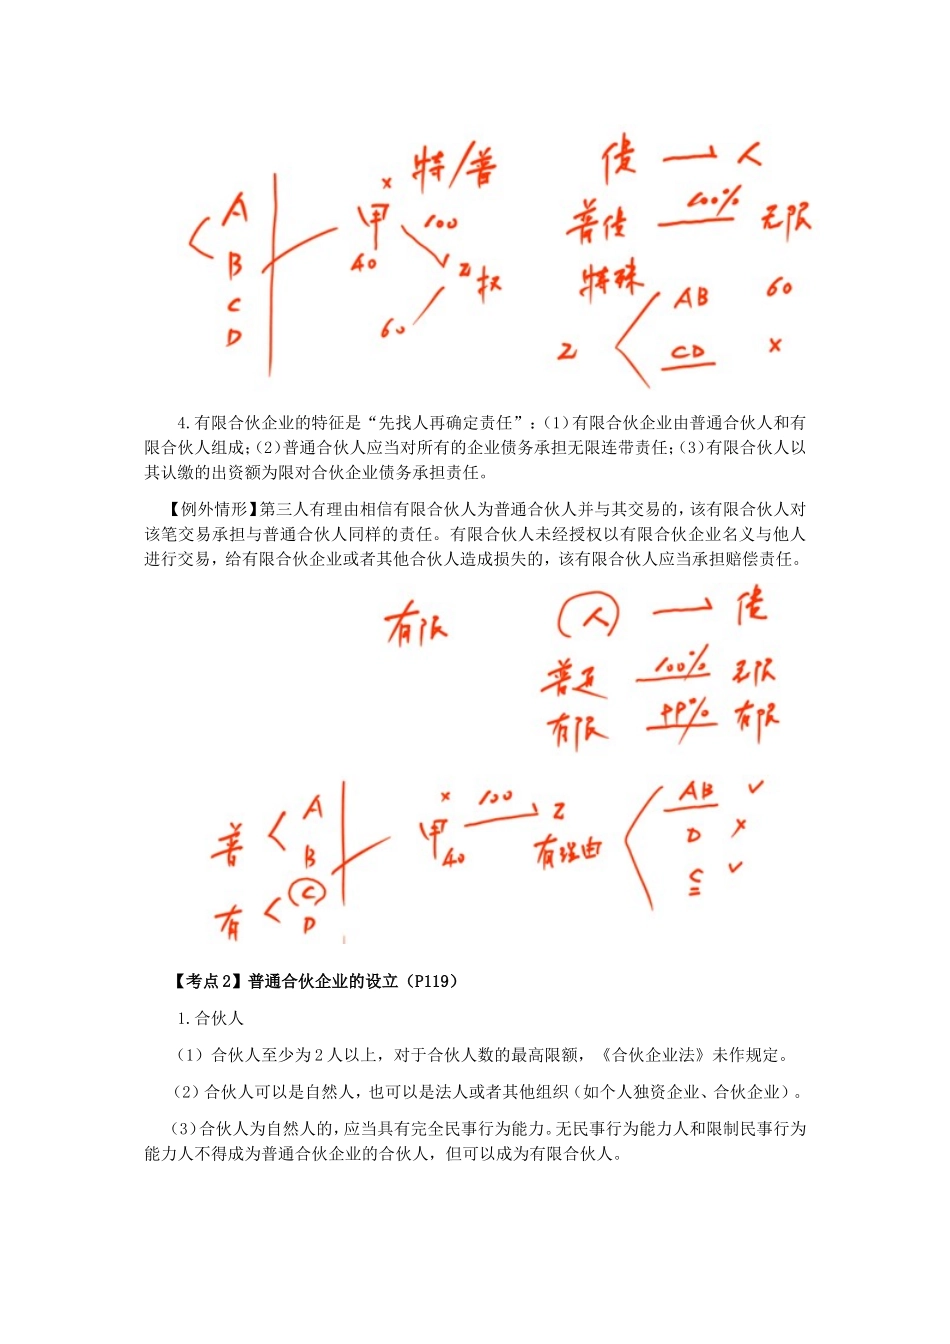 特/普
债 → 人
×
A
甲
100
普债 100% 无限
B
40
乙
权
特殊
AB
60
C
D
60
乙
CD
×
4.有限合伙企业的特征是“先找人再确定责任”：（1）有限合伙企业由普通合伙人和有
限合伙人组成；（2）普通合伙人应当对所有的企业债务承担无限连带责任；（3）有限合伙人以
其认缴的出资额为限对合伙企业债务承担责任。
【例外情形】第三人有理由相信有限合伙人为普通合伙人并与其交易的，该有限合伙人对
该笔交易承担与普通合伙人同样的责任。有限合伙人未经授权以有限合伙企业名义与他人
进行交易，给有限合伙企业或者其他合伙人造成损失的，该有限合伙人应当承担赔偿责任。
有限
人 → 债
普通 100% 无限
有限 99% 有限
A
×
100
乙
AB ✓
普
B
甲
40
有理由
D ×
C
C ✓
有
D
【考点 2】普通合伙企业的设立（P119）
1.合伙人
（1）合伙人至少为 2 人以上，对于合伙人数的最高限额，《合伙企业法》未作规定。
（2）合伙人可以是自然人，也可以是法人或者其他组织（如个人独资企业、合伙企业）。
（3）合伙人为自然人的，应当具有完全民事行为能力。无民事行为能力人和限制民事行为
能力人不得成为普通合伙企业的合伙人，但可以成为有限合伙人。